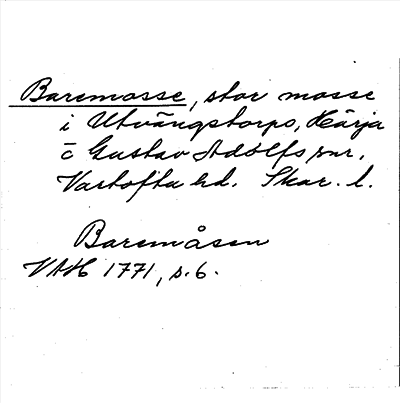 Baremosse, stor mosse
i Utvängstorps, Härja
o Gustav Adolfs snr,
Vartofta hd. Skar. l.
Baremåsen
VAH 1771, s. 6.